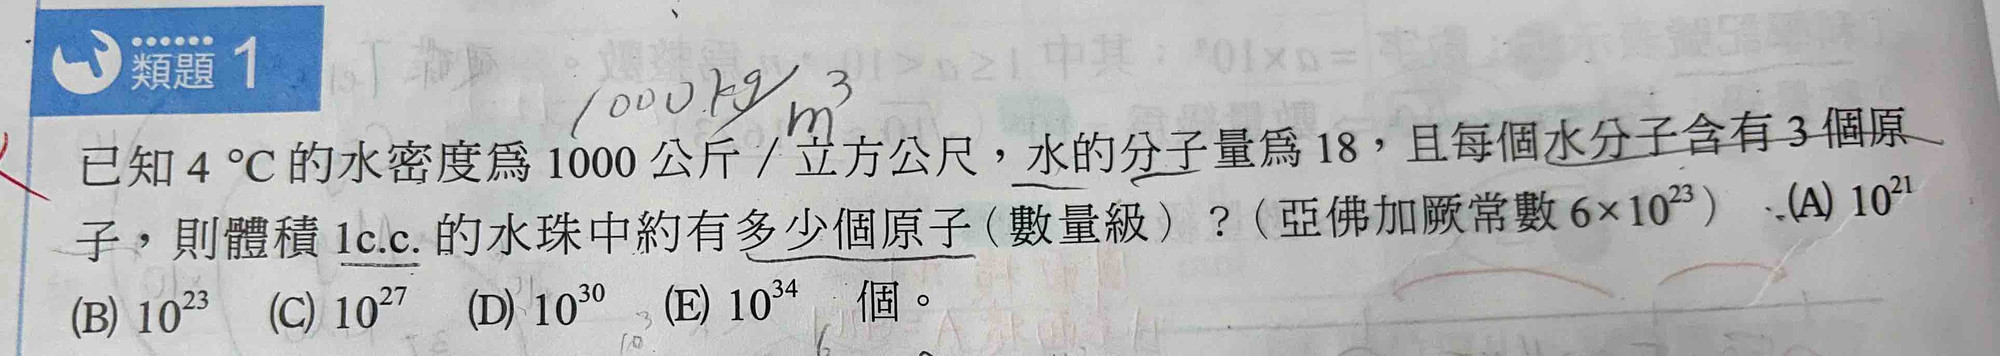 類題 1
1000 kg/m³
已知 4 °C 的水密度爲 1000 公斤／立方公尺，水的分子量爲 18，且每個水分子含有 3 個原
子，則體積 1c.c. 的水珠中約有多少個原子（數量級）？（亞佛加厥常數 6×10²³） (A) 10²¹
(B) 10²³ (C) 10²⁷ (D) 10³⁰ (E) 10³⁴ 個。